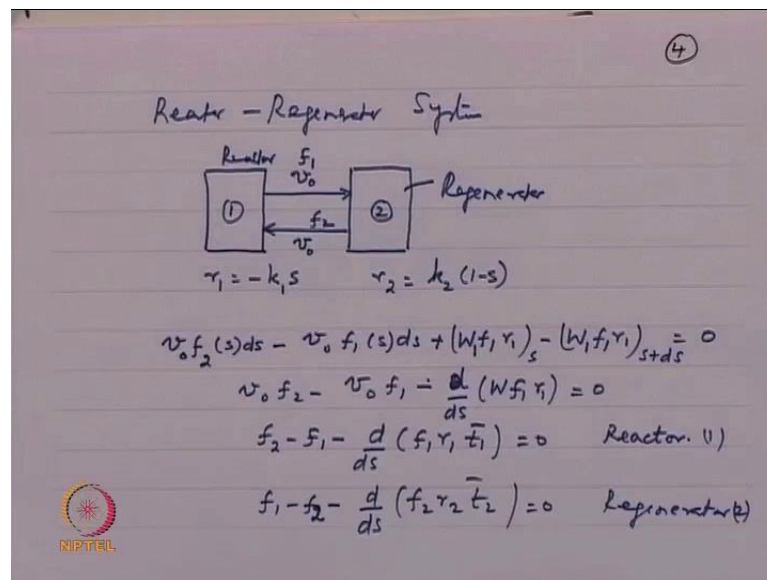 ④
Reactor - Regenerator System
Reactor f₁
v₀
① ② Regenerator
f₂
v₀
r₁ = -k₁s r₂ = k₂ (1-s)
v₀f₂(s)ds - v₀ f₁(s)ds + (W₁f₁r₁)ₛ - (W₁f₁r₁)ₛ₊dₛ = 0
v₀ f₂ - v₀ f₁ - d/ds (Wf₁r₁) = 0
f₂ - f₁ - d/ds (f₁ r₁ t̄₁) = 0 Reactor. (1)
f₁ - f₂ - d/ds (f₂ r₂ t̄₂) = 0 Regenerator(2)
NPTEL